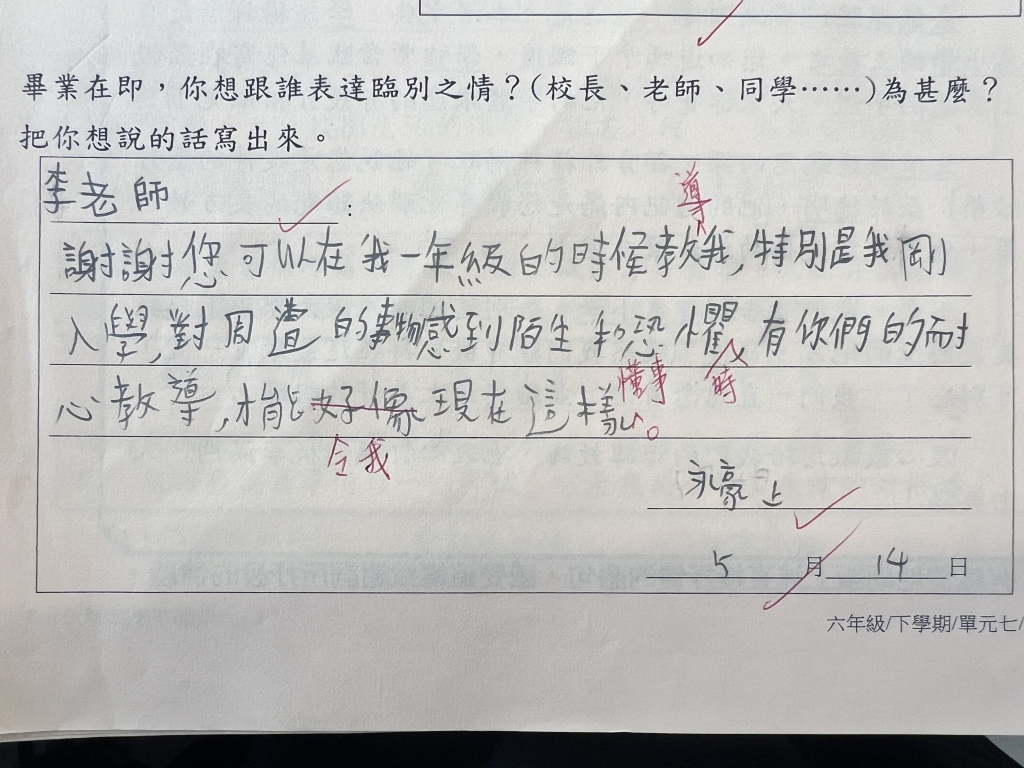 畢業在即，你想跟誰表達臨別之情？(校長、老師、同學……)為甚麼？
把你想說的話寫出來。
李老師：
導
謝謝您可以在我一年級的時候教我，特別是我剛
入學，對周遭的事物感到陌生和恐懼，有你們的耐
懂事 時
心教導，才能好像現在這樣。
令我
永豪上
5月14日
六年級/下學期/單元七/